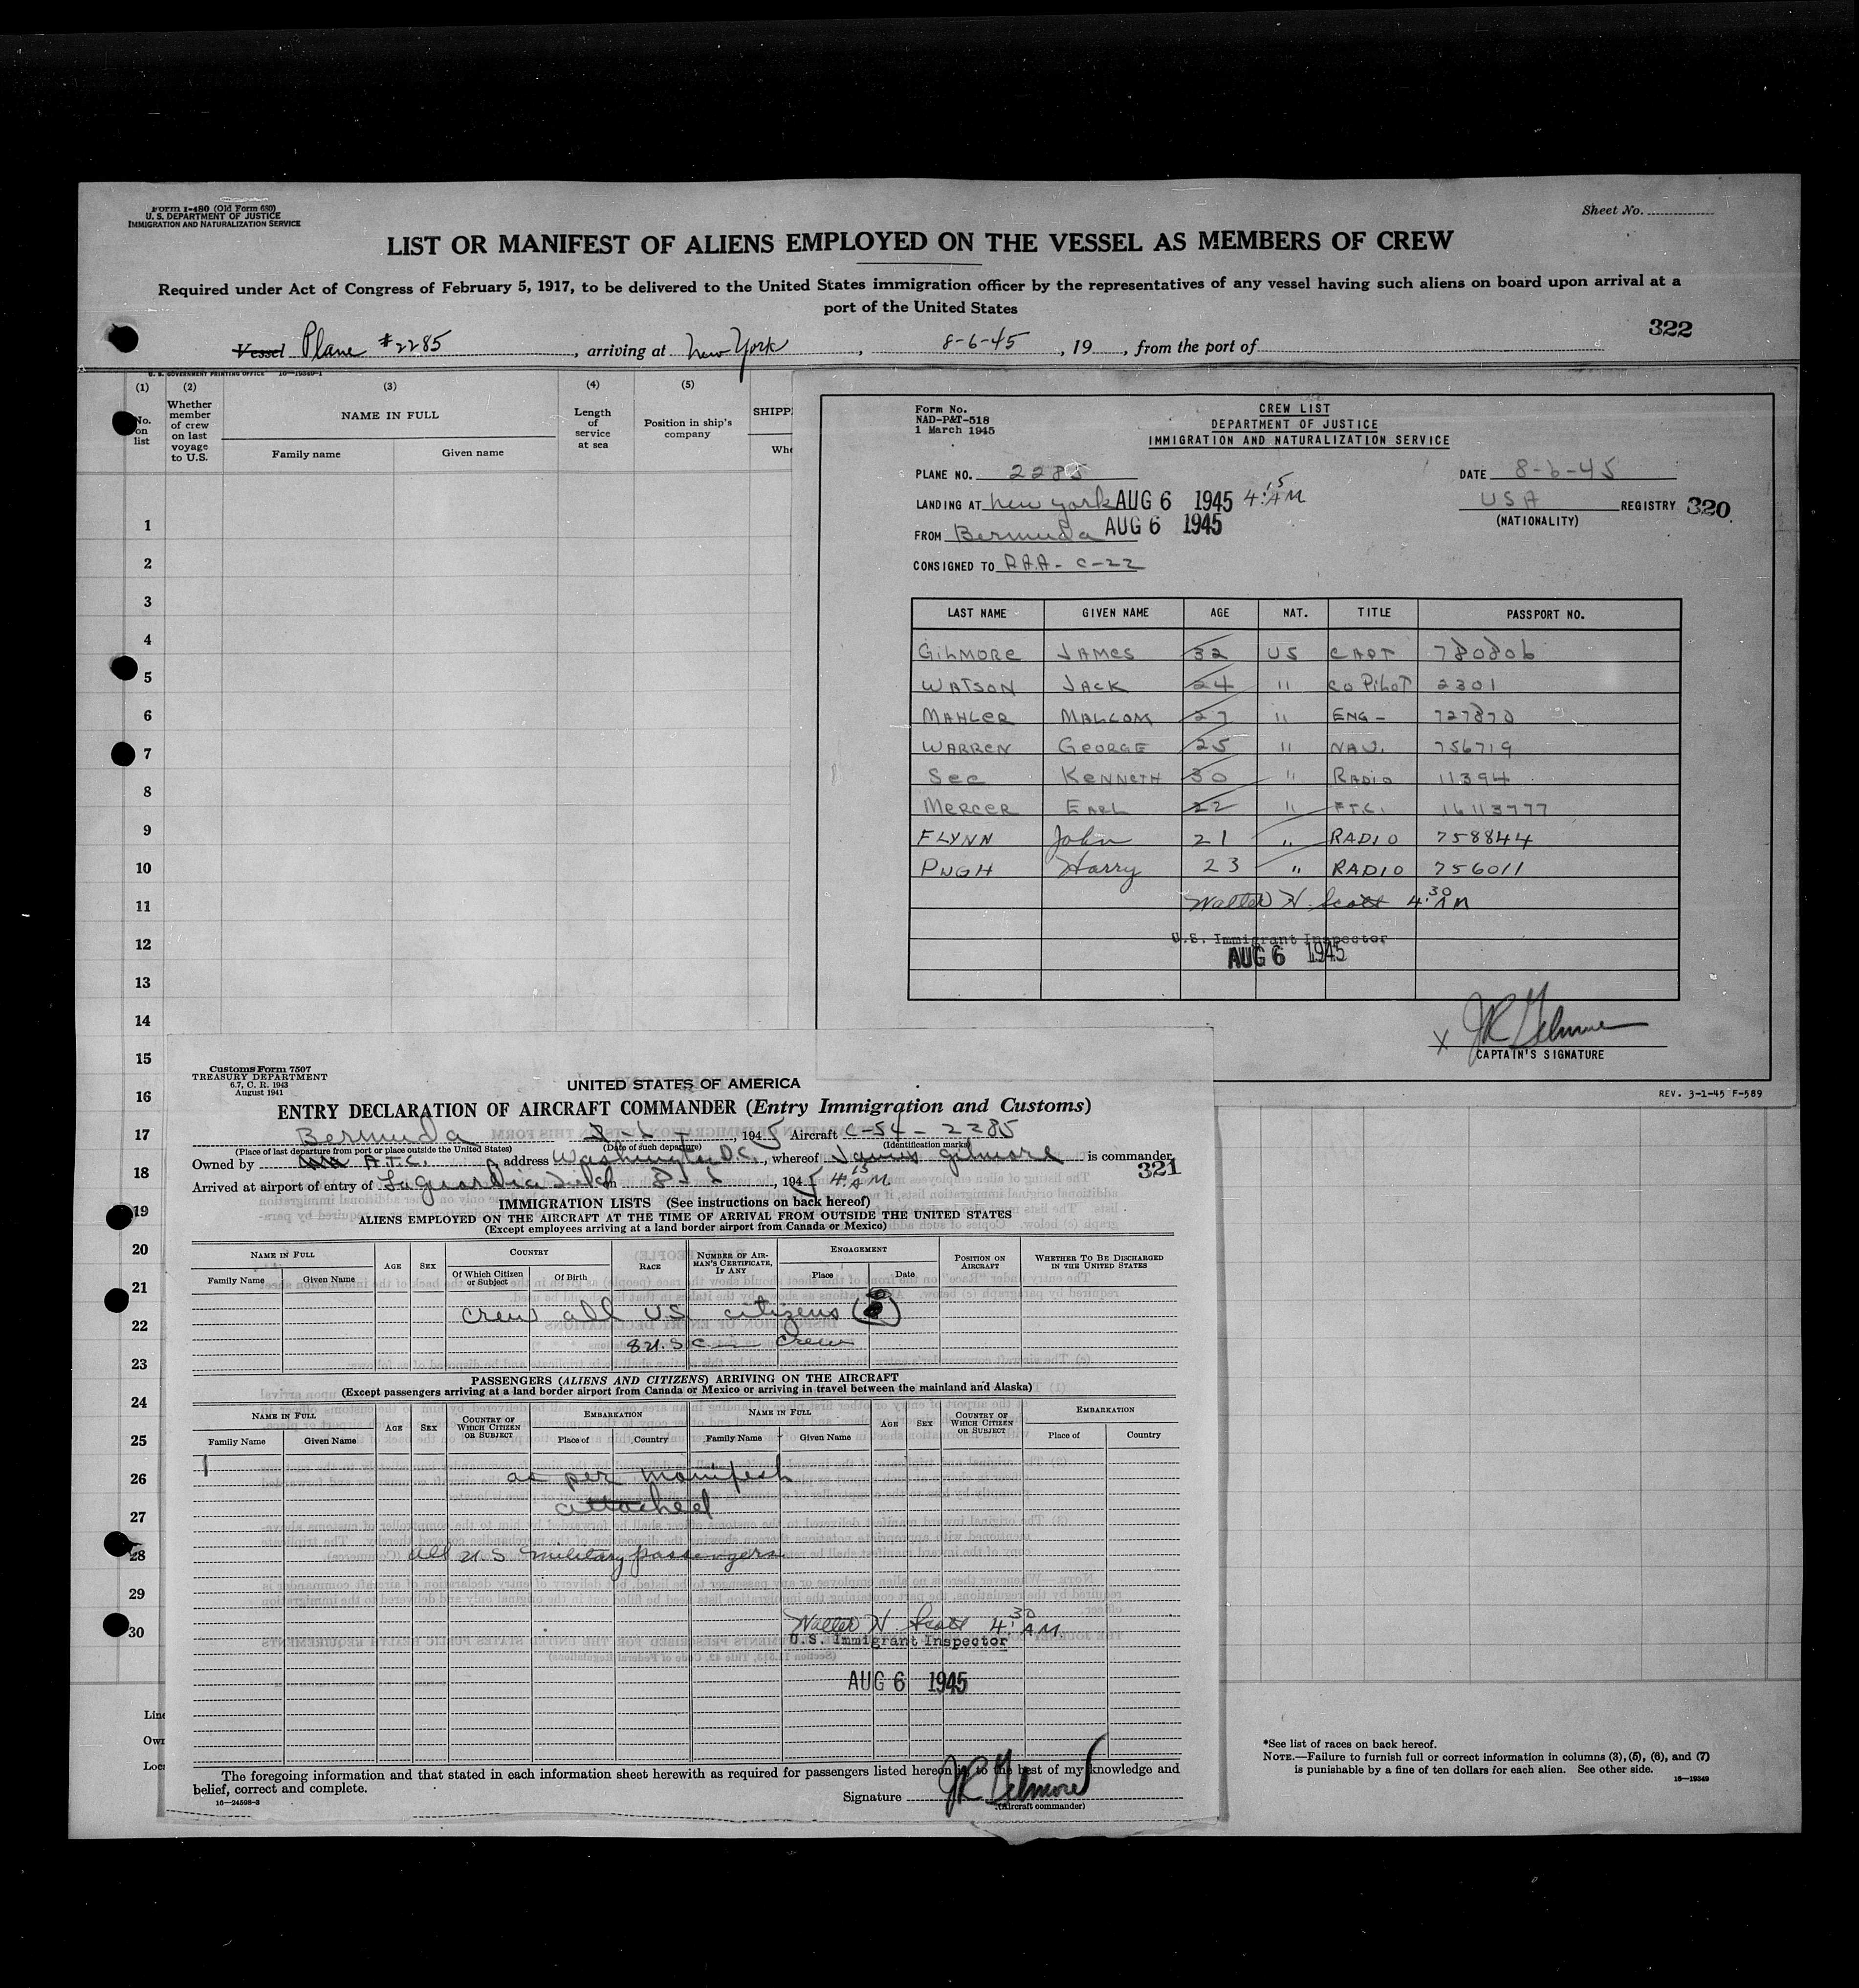 Form I-480 (Old Form 680)
U. S. DEPARTMENT OF JUSTICE
IMMIGRATION AND NATURALIZATION SERVICE
Sheet No.
LIST OR MANIFEST OF ALIENS EMPLOYED ON THE VESSEL AS MEMBERS OF CREW
Required under Act of Congress of February 5, 1917, to be delivered to the United States immigration officer by the representatives of any vessel having such aliens on board upon arrival at a
port of the United States
322
Vessel Plane #2285, arriving at New York, 8-6-45, 19, from the port of
U. S. GOVERNMENT PRINTING OFFICE 16—19349-1
(1) (2) (3) (4) (5)
No. on list
Whether member of crew on last voyage to U.S.
NAME IN FULL
Family name Given name
Length of service at sea
Position in ship's company
SHIPP
Whe
1
2
3
4
5
6
7
8
9
10
11
12
13
14
15
16
17
18
19
20
21
22
23
24
25
26
27
28
29
30
Line
Own
Loca
Form No.
NAD-P&T-518
1 March 1945
CREW LIST
DEPARTMENT OF JUSTICE
IMMIGRATION AND NATURALIZATION SERVICE
PLANE NO. 2285 DATE 8-6-45
LANDING AT New York AUG 6 1945 4:15 AM USA REGISTRY 320
(NATIONALITY)
FROM Bermuda AUG 6 1945
CONSIGNED TO P.A.A- C-22
LAST NAME GIVEN NAME AGE NAT. TITLE PASSPORT NO.
GILMORE JAMES 32 US CAPT 780806
WATSON JACK 24 " CO PILOT 2301
MAHLER MALCOM 27 " ENG- 727870
WARREN GEORGE 25 " NAV. 756719
SEE KENNETH 30 " RADIO 11394
MERCER EARL 22 " F.T.C. 16113777
FLYNN John 21 " RADIO 758844
PUGH Harry 23 " RADIO 756011
Walter H. Scott 4:30 AM
U.S. Immigrant Inspector
AUG 6 1945
X JR Gilmore
CAPTAIN'S SIGNATURE
REV. 3-1-45 F-589
Customs Form 7507
TREASURY DEPARTMENT
6.7, C. R. 1943
August 1941
UNITED STATES OF AMERICA
ENTRY DECLARATION OF AIRCRAFT COMMANDER (Entry Immigration and Customs)
Bermuda 8-6, 1945 Aircraft C-54-2285
(Place of last departure from port or place outside the United States) (Date of such departure) (Identification marks)
Owned by A.T.C. address Washington D.C., whereof James Gilmore is commander
321
Arrived at airport of entry of LaGuardia Field on 8-6, 1945 4:15 AM
IMMIGRATION LISTS (See instructions on back hereof)
ALIENS EMPLOYED ON THE AIRCRAFT AT THE TIME OF ARRIVAL FROM OUTSIDE THE UNITED STATES
(Except employees arriving at a land border airport from Canada or Mexico)
NAME IN FULL AGE SEX COUNTRY RACE NUMBER OF AIRMAN'S CERTIFICATE, IF ANY ENGAGEMENT POSITION ON AIRCRAFT WHETHER TO BE DISCHARGED IN THE UNITED STATES
Family Name Given Name Of Which Citizen or Subject Of Birth Place Date
crew all US citizens (8)
8 U.S.C. crew
PASSENGERS (ALIENS AND CITIZENS) ARRIVING ON THE AIRCRAFT
(Except passengers arriving at a land border airport from Canada or Mexico or arriving in travel between the mainland and Alaska)
NAME IN FULL AGE SEX COUNTRY OF WHICH CITIZEN OR SUBJECT EMBARKATION NAME IN FULL AGE SEX COUNTRY OF WHICH CITIZEN OR SUBJECT EMBARKATION
Family Name Given Name Place of Country Family Name Given Name Place of Country
as per manifest
attached
All U.S military passengers
Walter H Scott 4:30 AM
U.S. Immigrant Inspector
AUG 6 1945
The foregoing information and that stated in each information sheet herewith as required for passengers listed hereon is to the best of my knowledge and
belief, correct and complete.
16—24598-3
Signature JR Gilmore
(Aircraft commander)
*See list of races on back hereof.
NOTE.—Failure to furnish full or correct information in columns (3), (5), (6), and (7)
is punishable by a fine of ten dollars for each alien. See other side.
16—19349